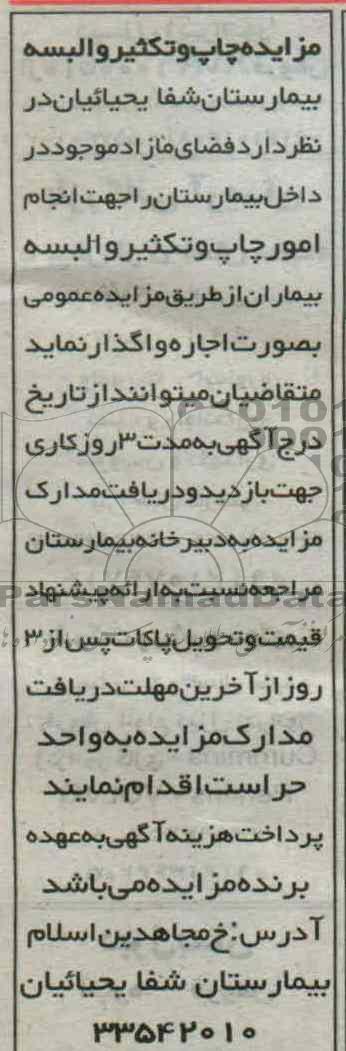 مزایده چاپ و تکثیر و البسه
بیمارستان شفا یحیائیان در
نظر دارد فضای مازاد موجود در
داخل بیمارستان را جهت انجام
امور چاپ و تکثیر و البسه
بیماران از طریق مزایده عمومی
بصورت اجاره واگذار نماید
متقاضیان میتوانند از تاریخ
درج آگهی به مدت ۳ روز کاری
جهت بازدید و دریافت مدارک
مزایده به دبیرخانه بیمارستان
مراجعه نسبت به ارائه پیشنهاد
ParsNamadData
قیمت و تحویل پاکات پس از ۳
روز از آخرین مهلت دریافت
مدارک مزایده به واحد
حراست اقدام نمایند
پرداخت هزینه آگهی به عهده
برنده مزایده می باشد
آدرس: خ مجاهدین اسلام
بیمارستان شفا یحیائیان
۳۳۵۴۲۰۱۰